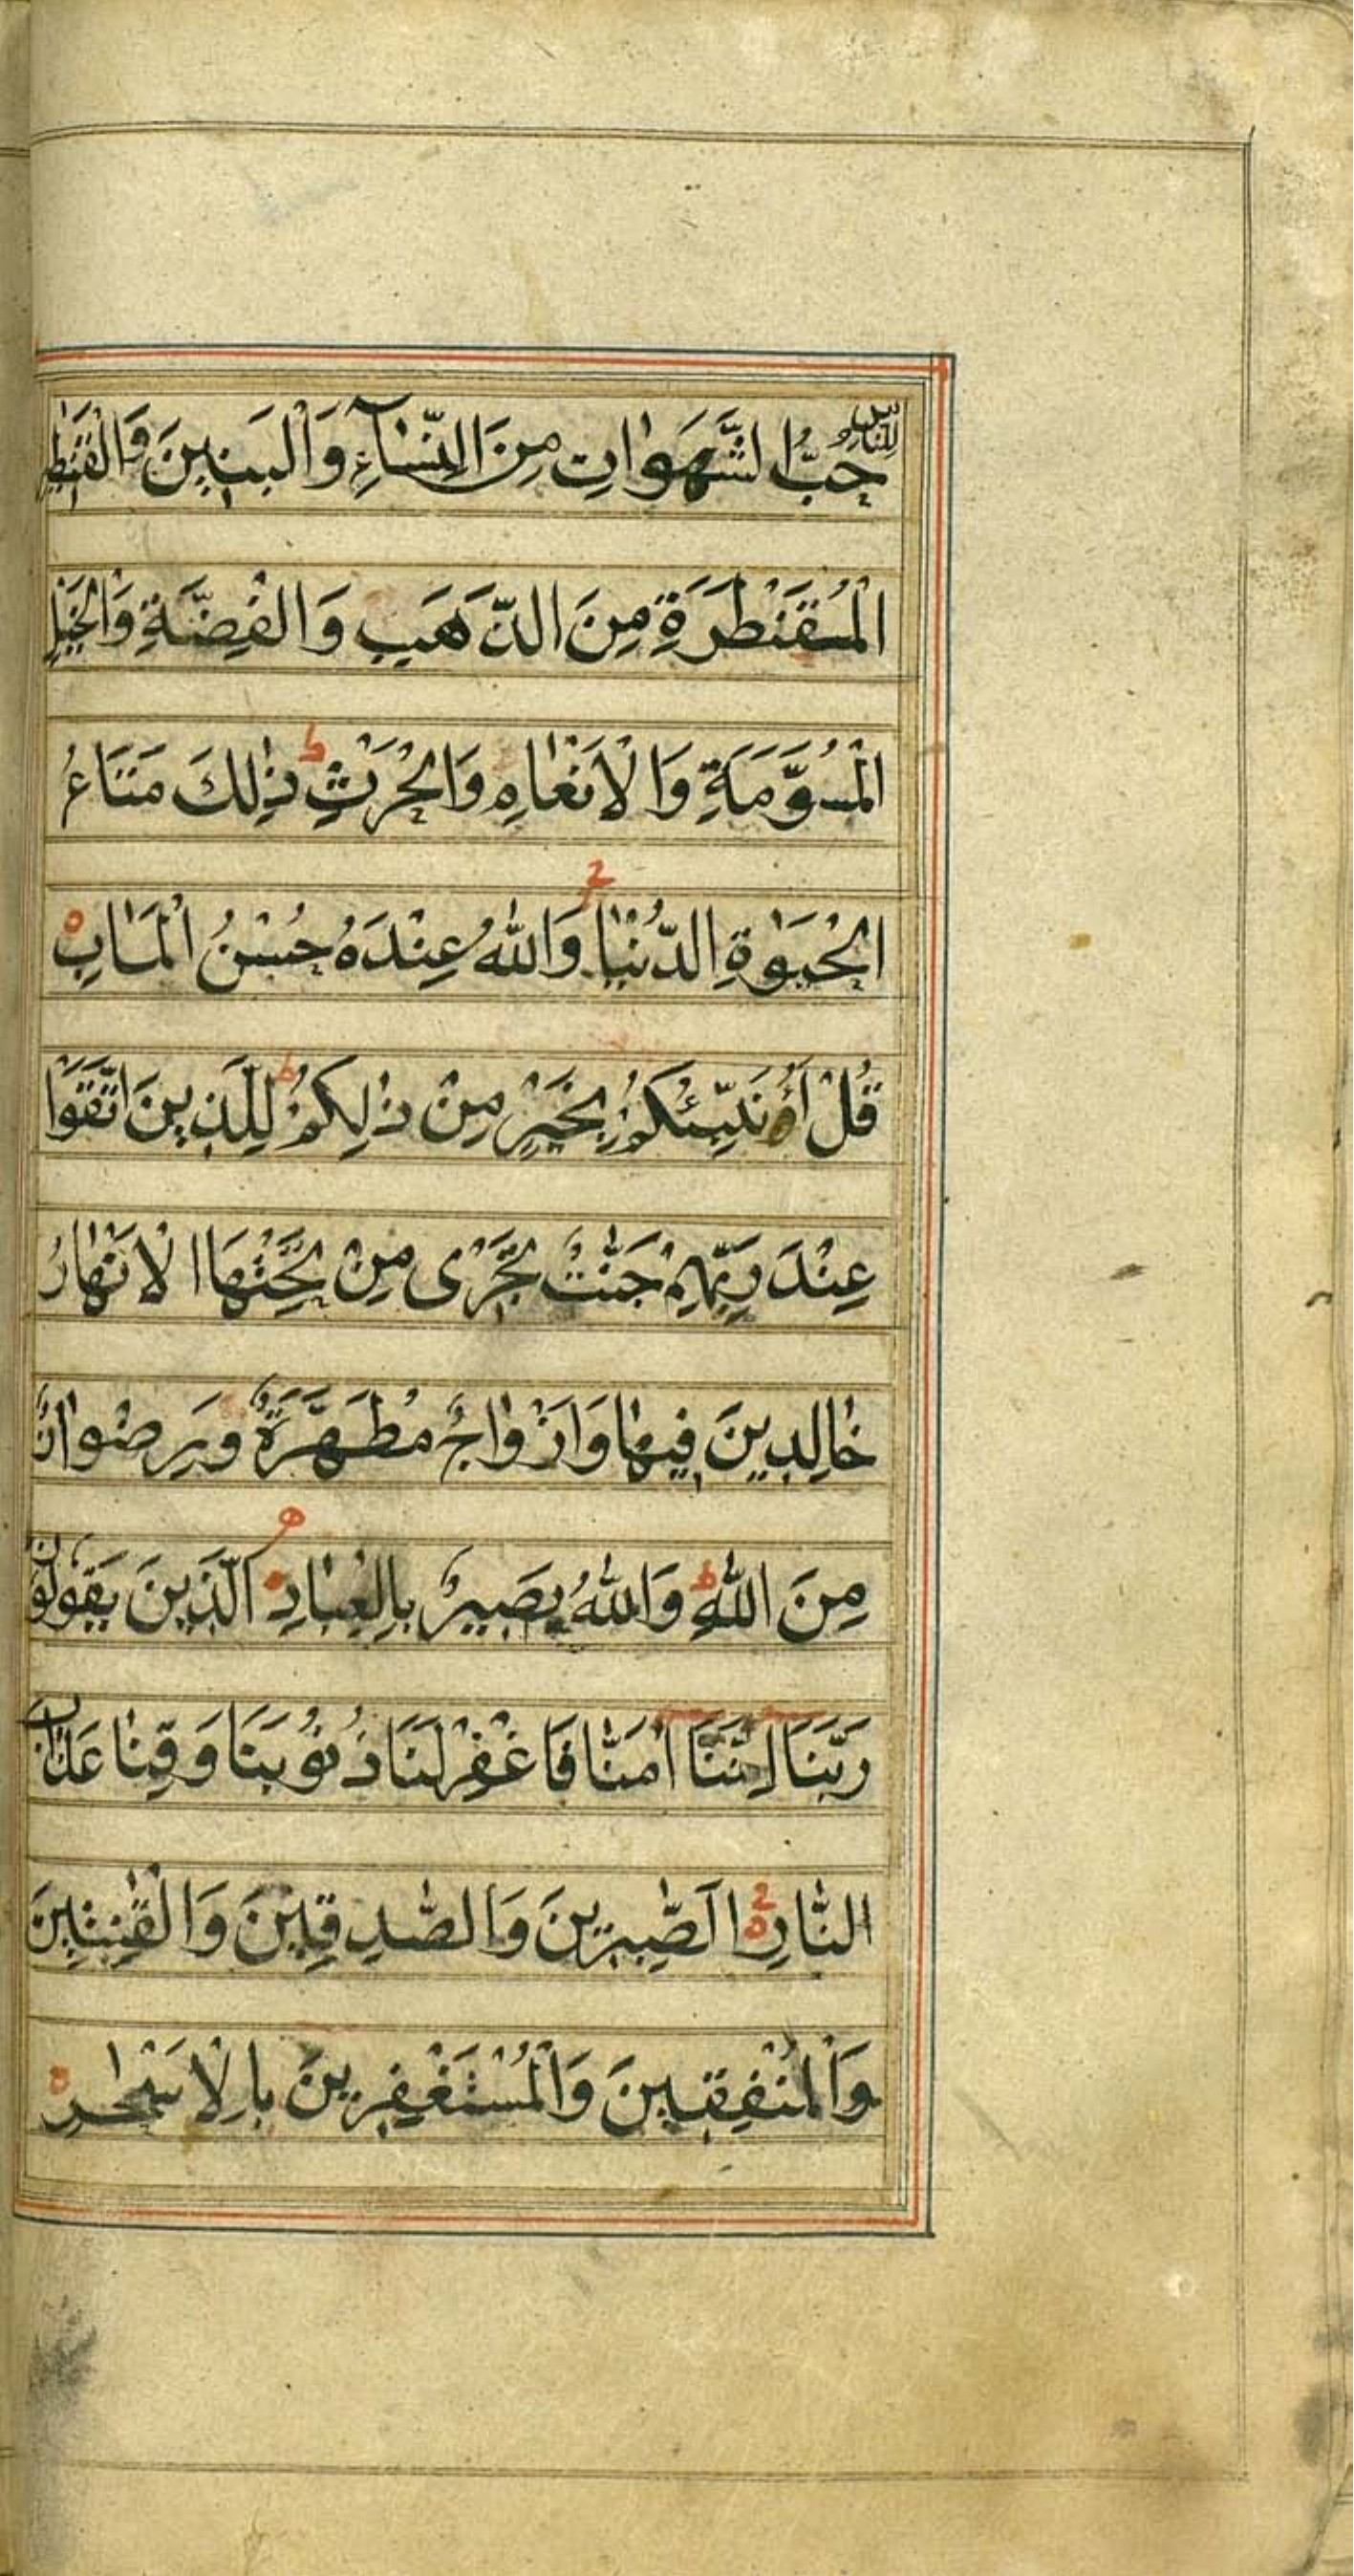 للناس
حُبُّ الشَّهَوَاتِ مِنَ النِّسَآءِ وَالْبَنِينَ وَالْقَنٰطِيرِ
الْمُقَنْطَرَةِ مِنَ الذَّهَبِ وَالْفِضَّةِ وَالْخَيْلِ
الْمُسَوَّمَةِ وَالْاَنْعَامِ وَالْحَرْثِ ط ذٰلِكَ مَتَاعُ
الْحَيٰوةِ الدُّنْيَا ج وَاللّٰهُ عِنْدَهُ حُسْنُ الْمَاٰبِ ه
قُلْ اَؤُنَبِّئُكُمْ بِخَيْرٍ مِنْ ذٰلِكُمْ ط لِلَّذِينَ اتَّقَوْا
عِنْدَ رَبِّهِمْ جَنّٰتٌ تَجْرِى مِنْ تَحْتِهَا الْاَنْهَارُ
خَالِدِينَ فِيهَا وَاَزْوَاجٌ مُطَهَّرَةٌ وَرِضْوَانٌ
مِنَ اللّٰهِ ط وَاللّٰهُ بَصِيرٌ بِالْعِبَادِ الَّذِينَ يَقُولُونَ
رَبَّنَا اِنَّنَا اٰمَنَّا فَاغْفِرْلَنَا ذُنُوبَنَا وَقِنَا عَذَابَ
النَّارِ ج الَصّٰبِرِينَ وَالصّٰدِقِينَ وَالْقٰنِتِينَ
وَالْمُنْفِقِينَ وَالْمُسْتَغْفِرِينَ بِالْاَسْحٰرِ ه